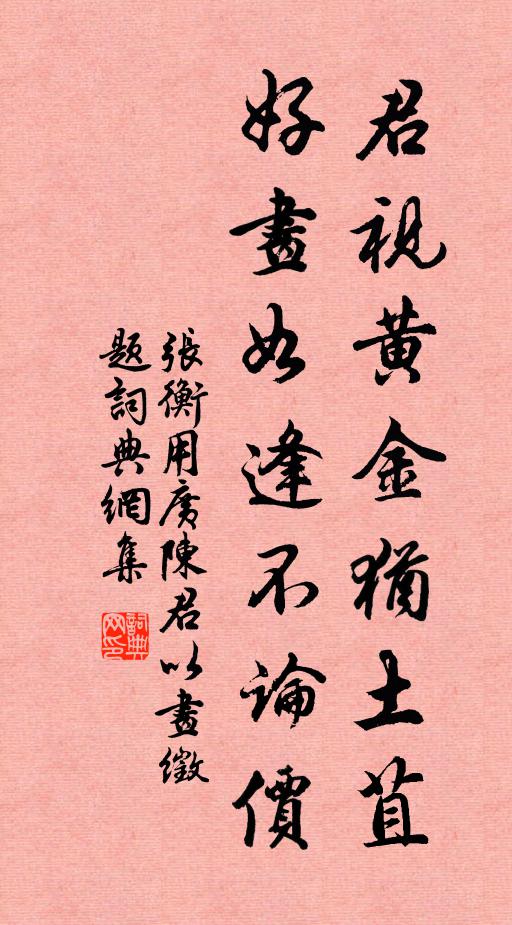 君視黃金猶土苴
好畫如逢不論價
張衡用廣陳君以畫徵
題詞典網集
詞典網印